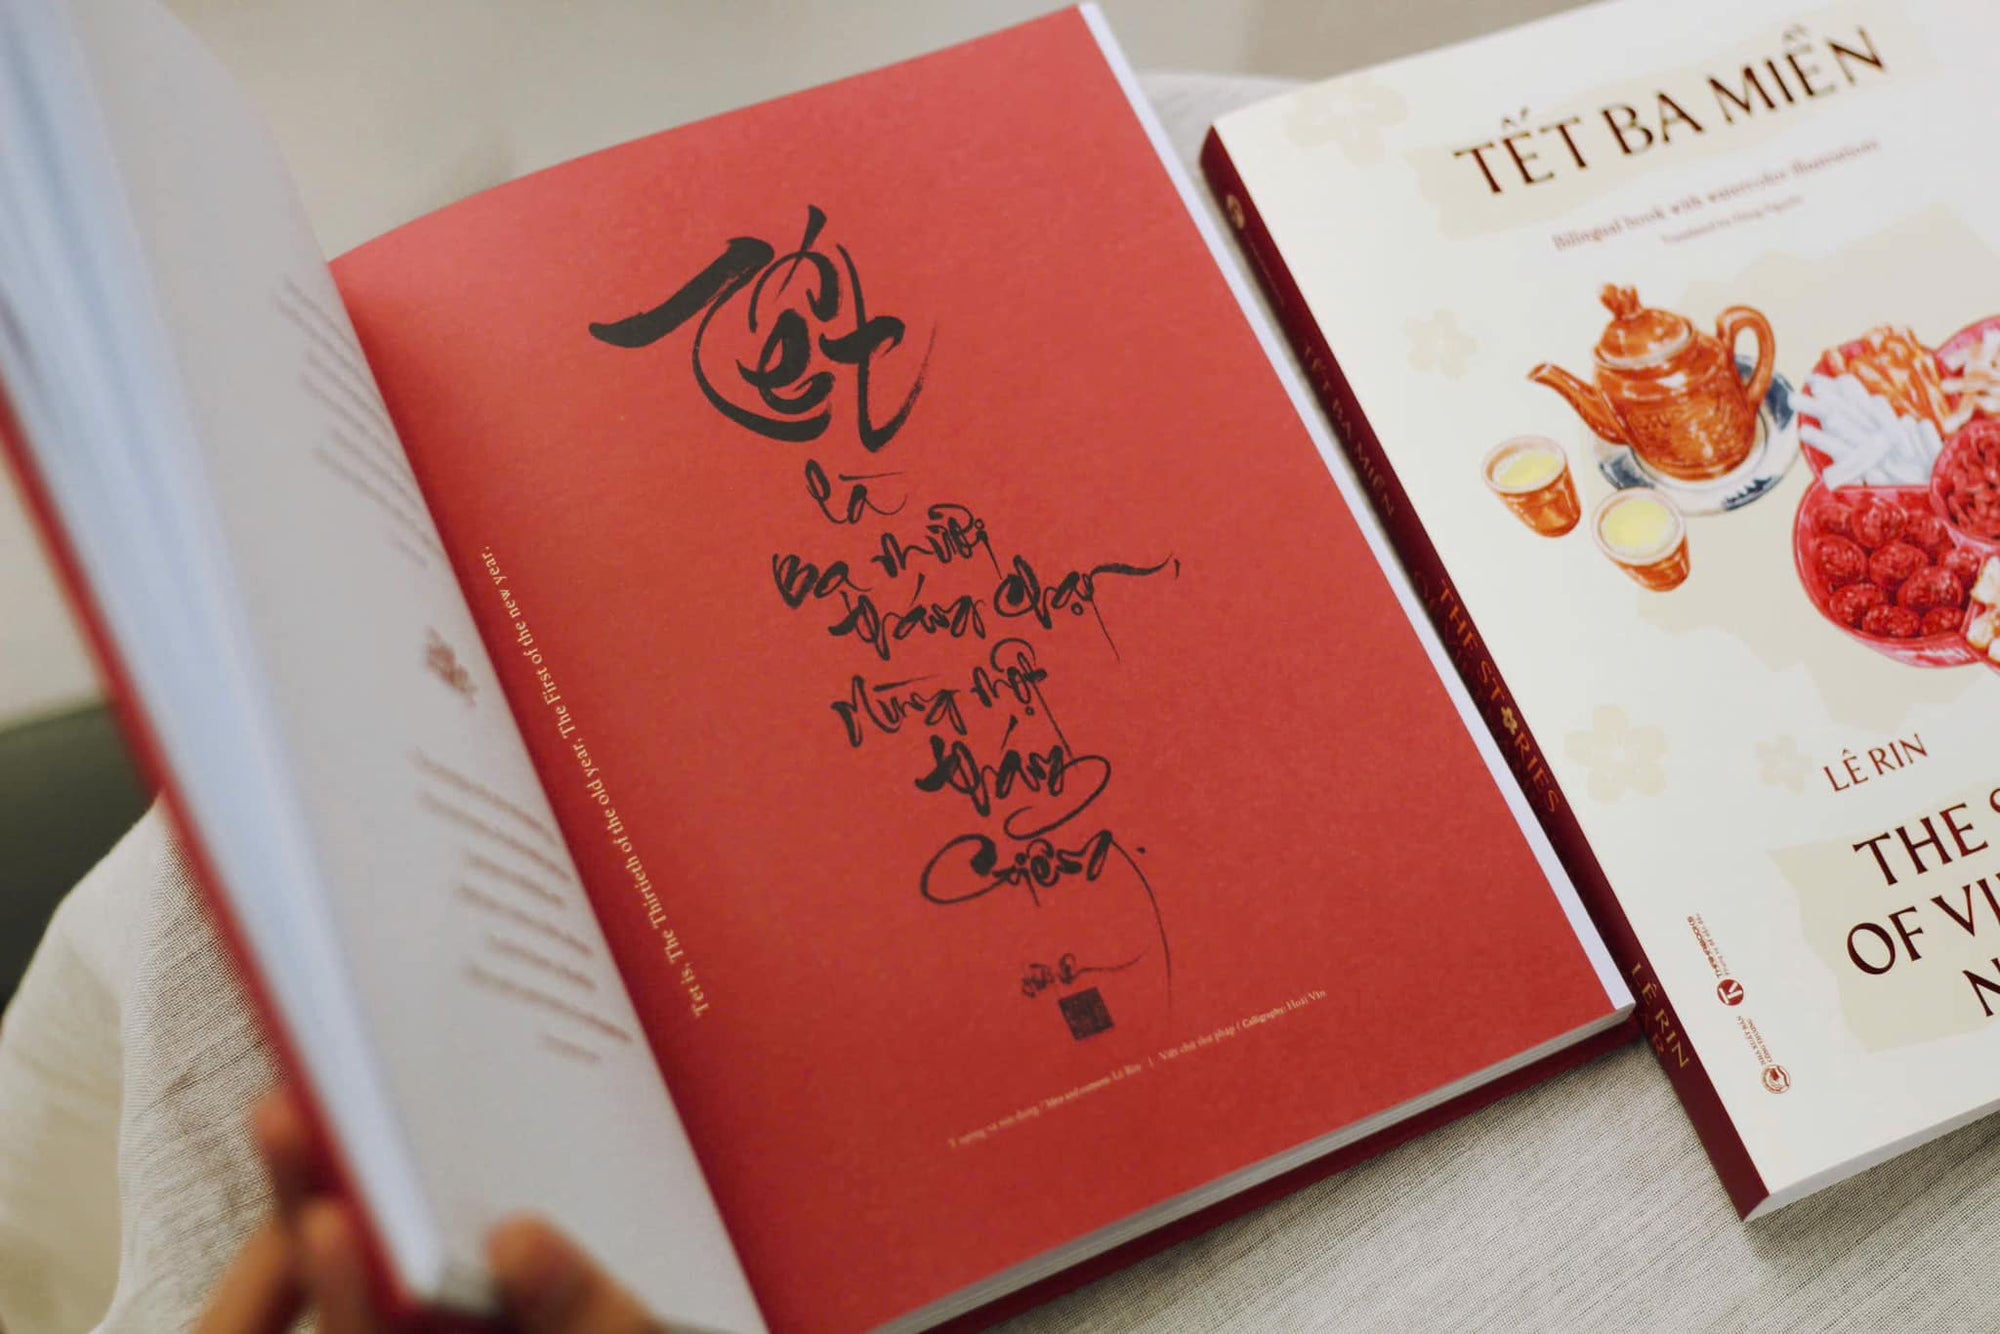 Tết
là
Ba mươi
tháng Chạp,
Mùng một
tháng
Giêng.
Tet is, The Thirtieth of the old year, The First of the new year.
Ý tưởng và nội dung / Idea and content: Lê Rin | Viết chữ thư pháp / Calligraphy: Hoài Vin
TẾT BA MIỀN
Bilingual book with watercolor illustrations
LÊ RIN
THE S
OF VI
N
TẾT BA MIỀN
THE STORIES
LÊ RIN
THAIHABOOKS
NHÀ XUẤT BẢN
CÔNG THƯƠNG